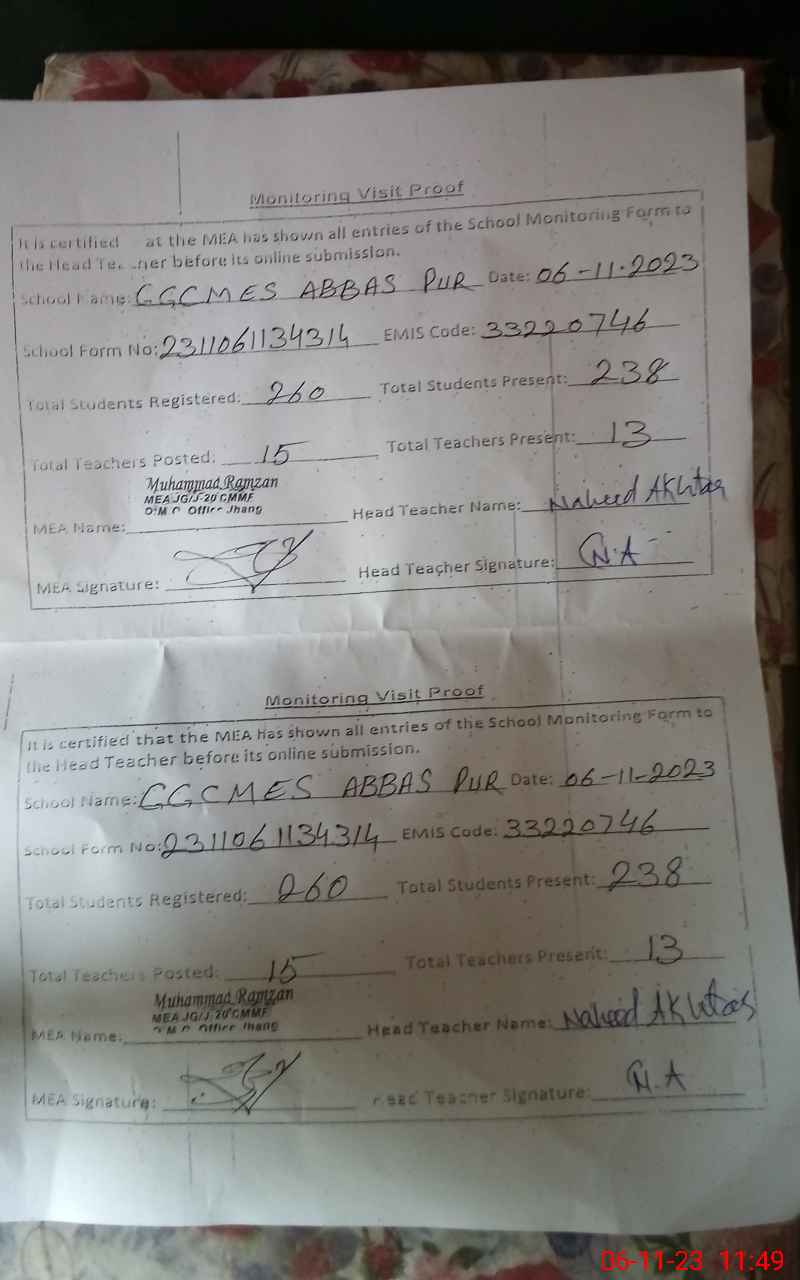 Monitoring Visit Proof
It is certified at the MEA has shown all entries of the School Monitoring Form to
the Head before its online submission.
School Name: GGCMES ABBAS PUR Date: 06-11-2023
School Form No: 2311061134314 EMIS Code: 33220746
Total Students Registered: 260 Total Students Present: 238
Total Teachers Posted: 15 Total Teachers Present: 13
Muhammad Ramzan
MEA JG/J-20 CMMF
D.M.O Office Jhang
MEA Name: Head Teacher Name: Naheed Akhtar
MEA Signature: Head Teacher Signature: N.A
Monitoring Visit Proof
It is certified that the MEA has shown all entries of the School Monitoring Form to
the Head Teacher before its online submission.
School Name: GGCMES ABBAS PUR Date: 06-11-2023
School Form No: 2311061134314 EMIS Code: 33220746
Total Students Registered: 260 Total Students Present: 238
Total Teachers Posted: 15 Total Teachers Present: 13
Muhammad Ramzan
MEA JG/J-20 CMMF
D.M.O Office Jhang
MEA Name: Head Teacher Name: Naheed Akhtar
MEA Signature: Head Teacher Signature: N.A
06-11-23 11:49